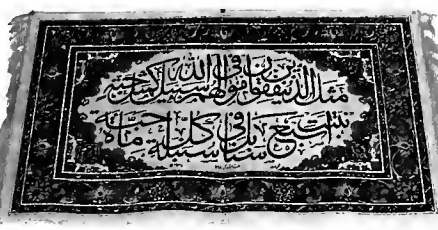 مثل الذين ينفقون أموالهم في سبيل الله كمثل حبة
أنبتت سبع سنابل في كل سنبلة مائة حبة